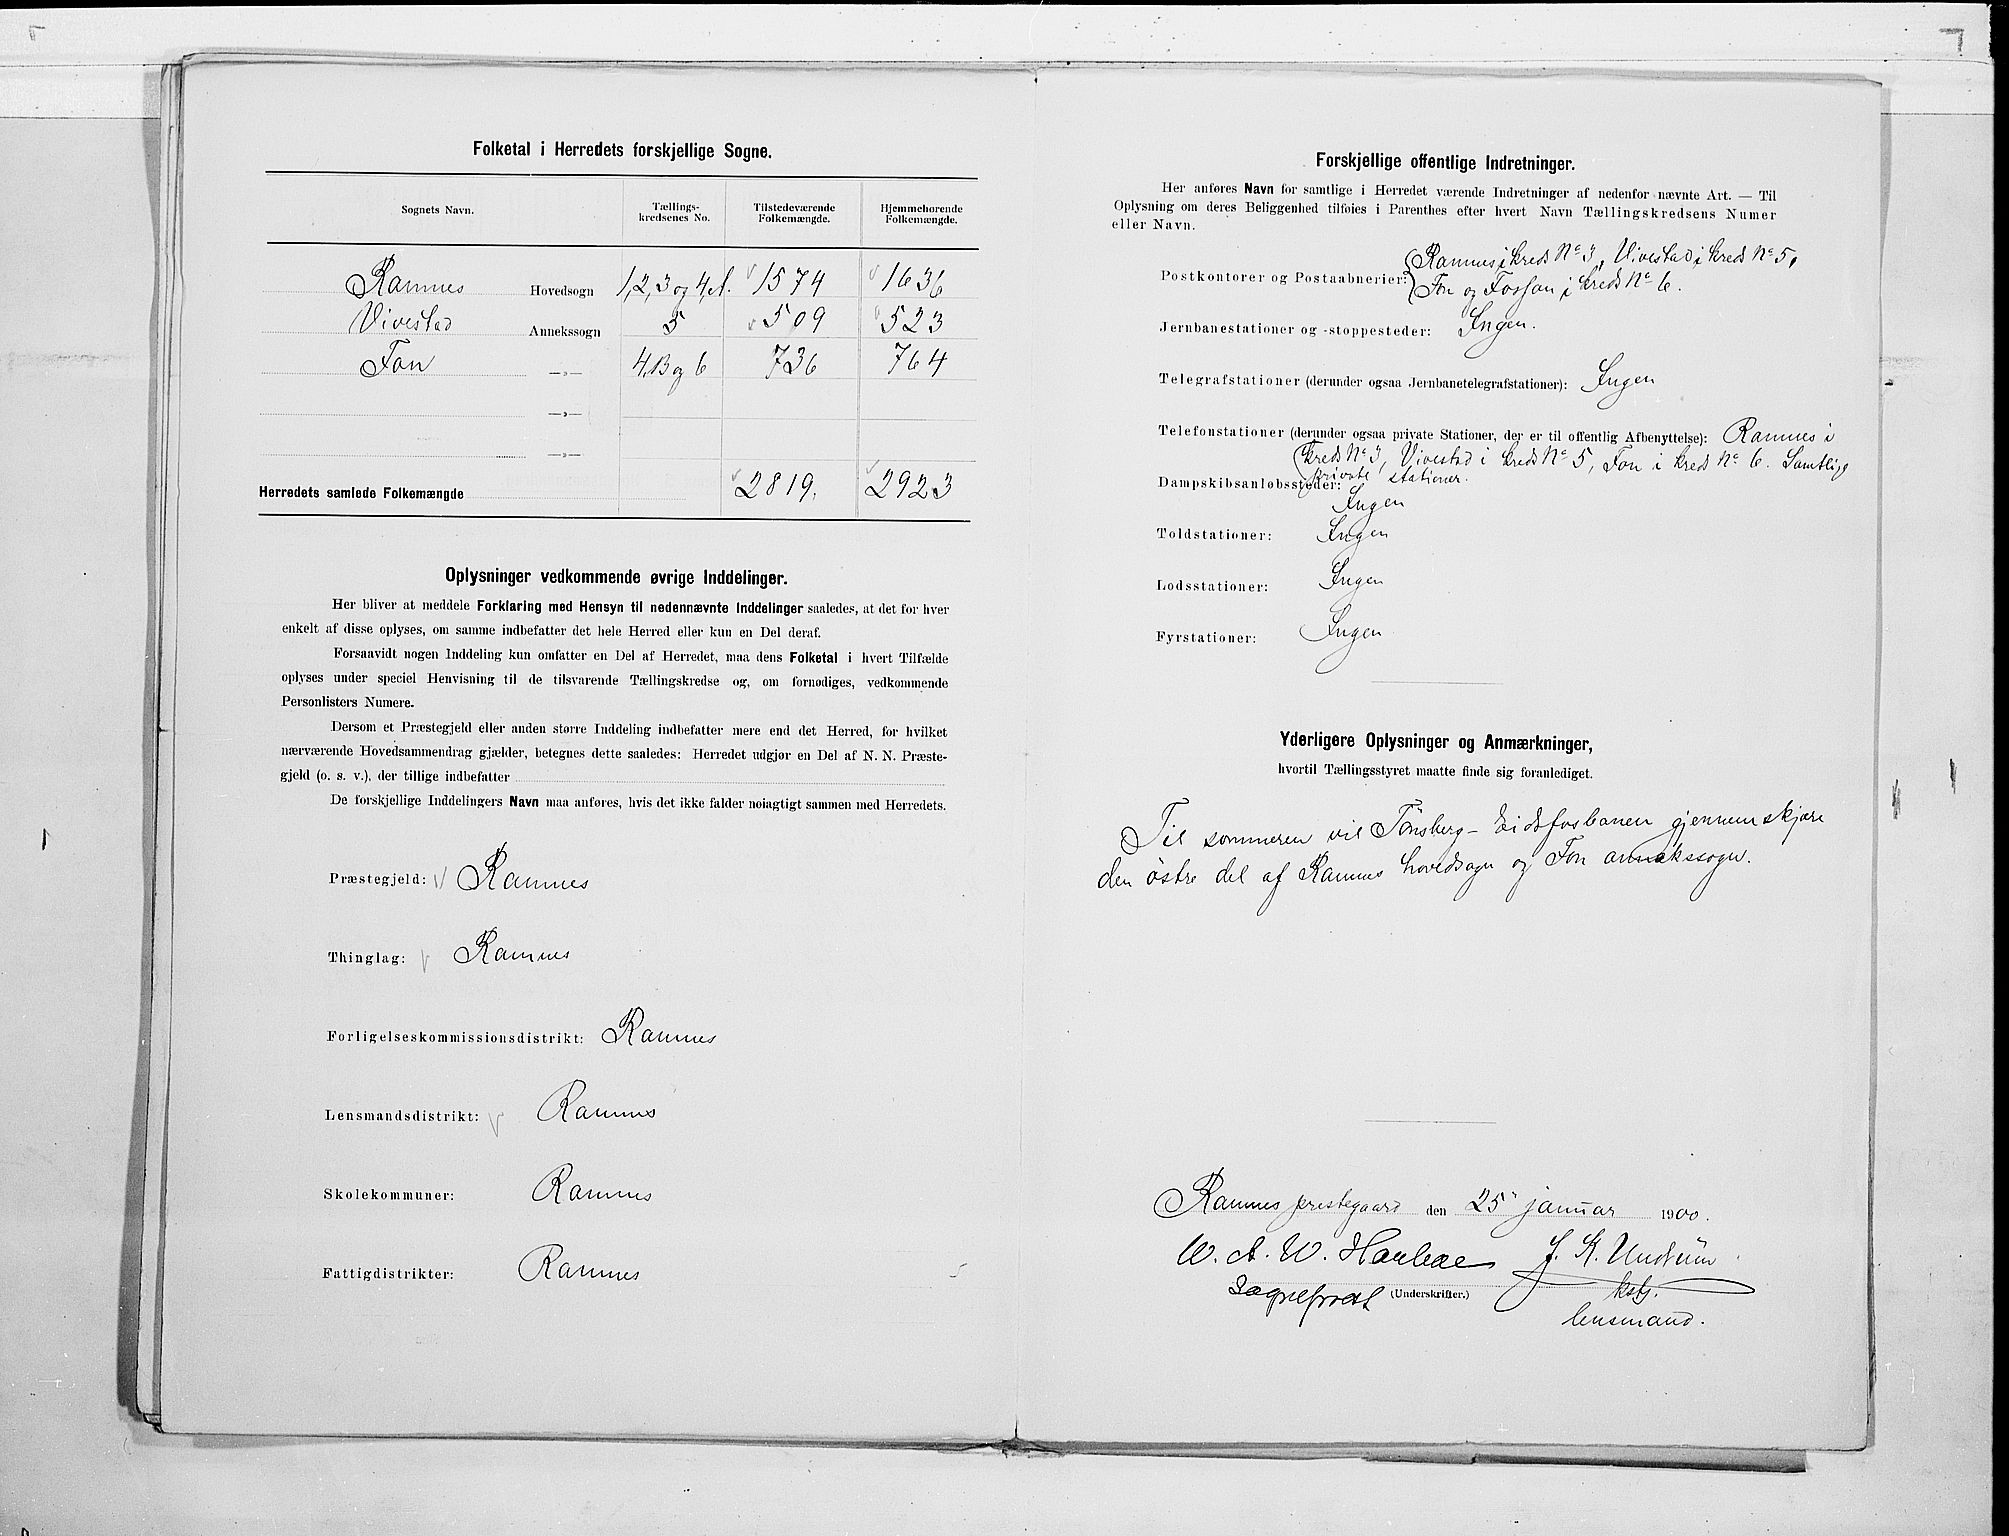 Folketal i Herredets forskjellige Sogne.
Sognets Navn. Tællings-kredsenes No. Tilstedeværende Folkemængde. Hjemmehørende Folkemængde.
Ramnes Hovedsogn 1,2,3 og 4,A. 1574 1636
Vivestad Annekssogn 5 509 523
Fon —»— 4,B og 6 736 764
—»—
—»—
Herredets samlede Folkemængde 2819. 2923
Oplysninger vedkommende øvrige Inddelinger.
Her bliver at meddele Forklaring med Hensyn til nedennævnte Inddelinger saaledes, at det for hver
enkelt af disse oplyses, om samme indbefatter det hele Herred eller kun en Del deraf.
Forsaavidt nogen Inddeling kun omfatter en Del af Herredet, maa dens Folketal i hvert Tilfælde
oplyses under speciel Henvisning til de tilsvarende Tællingskredse og, om fornødiges, vedkommende
Personlisters Numere.
Dersom et Præstegjeld eller anden større Inddeling indbefatter mere end det Herred, for hvilket
nærværende Hovedsammendrag gjælder, betegnes dette saaledes: Herredet udgjør en Del af N. N. Præste-
gjeld (o. s. v.), der tillige indbefatter
De forskjellige Inddelingers Navn maa anføres, hvis det ikke falder nøiagtigt sammen med Herredets.
Præstegjeld: Ramnes
Thinglag: Ramnes
Forligelseskommissionsdistrikt: Ramnes
Lensmandsdistrikt: Ramnes
Skolekommuner: Ramnes
Fattigdistrikter: Ramnes
Forskjellige offentlige Indretninger.
Her anføres Navn for samtlige i Herredet værende Indretninger af nedenfor nævnte Art. — Til
Oplysning om deres Beliggenhed tilføies i Parenthes efter hvert Navn Tællingskredsens Numer
eller Navn.
Postkontorer og Postaabnerier: Ramnes i kreds No 3, Vivestad i kreds No 5,
Fon og Fossan i kreds No 6.
Jernbanestationer og -stoppesteder: Ingen.
Telegrafstationer (derunder ogsaa Jernbanetelegrafstationer): Ingen
Telefonstationer (derunder ogsaa private Stationer, der er til offentlig Afbenyttelse): Ramnes i
kreds No 3, Vivestad i kreds No 5, Fon i kreds No 6. Samtlige
private stationer.
Dampskibsanløbssteder: Ingen
Toldstationer: Ingen
Lodsstationer: Ingen
Fyrstationer: Ingen
Yderligere Oplysninger og Anmærkninger,
hvortil Tællingsstyret maatte finde sig foranlediget.
Til sommeren vil Tönsberg-Eidsfosbanen gjennemskjære
den östre del af Ramnes hovedsogn og Fon annekssogn.
Ramnes prestegaard den 25 januar 1900.
W. A. W. J. K.
Sogneprest (Underskrifter.) kst.
lensmand.